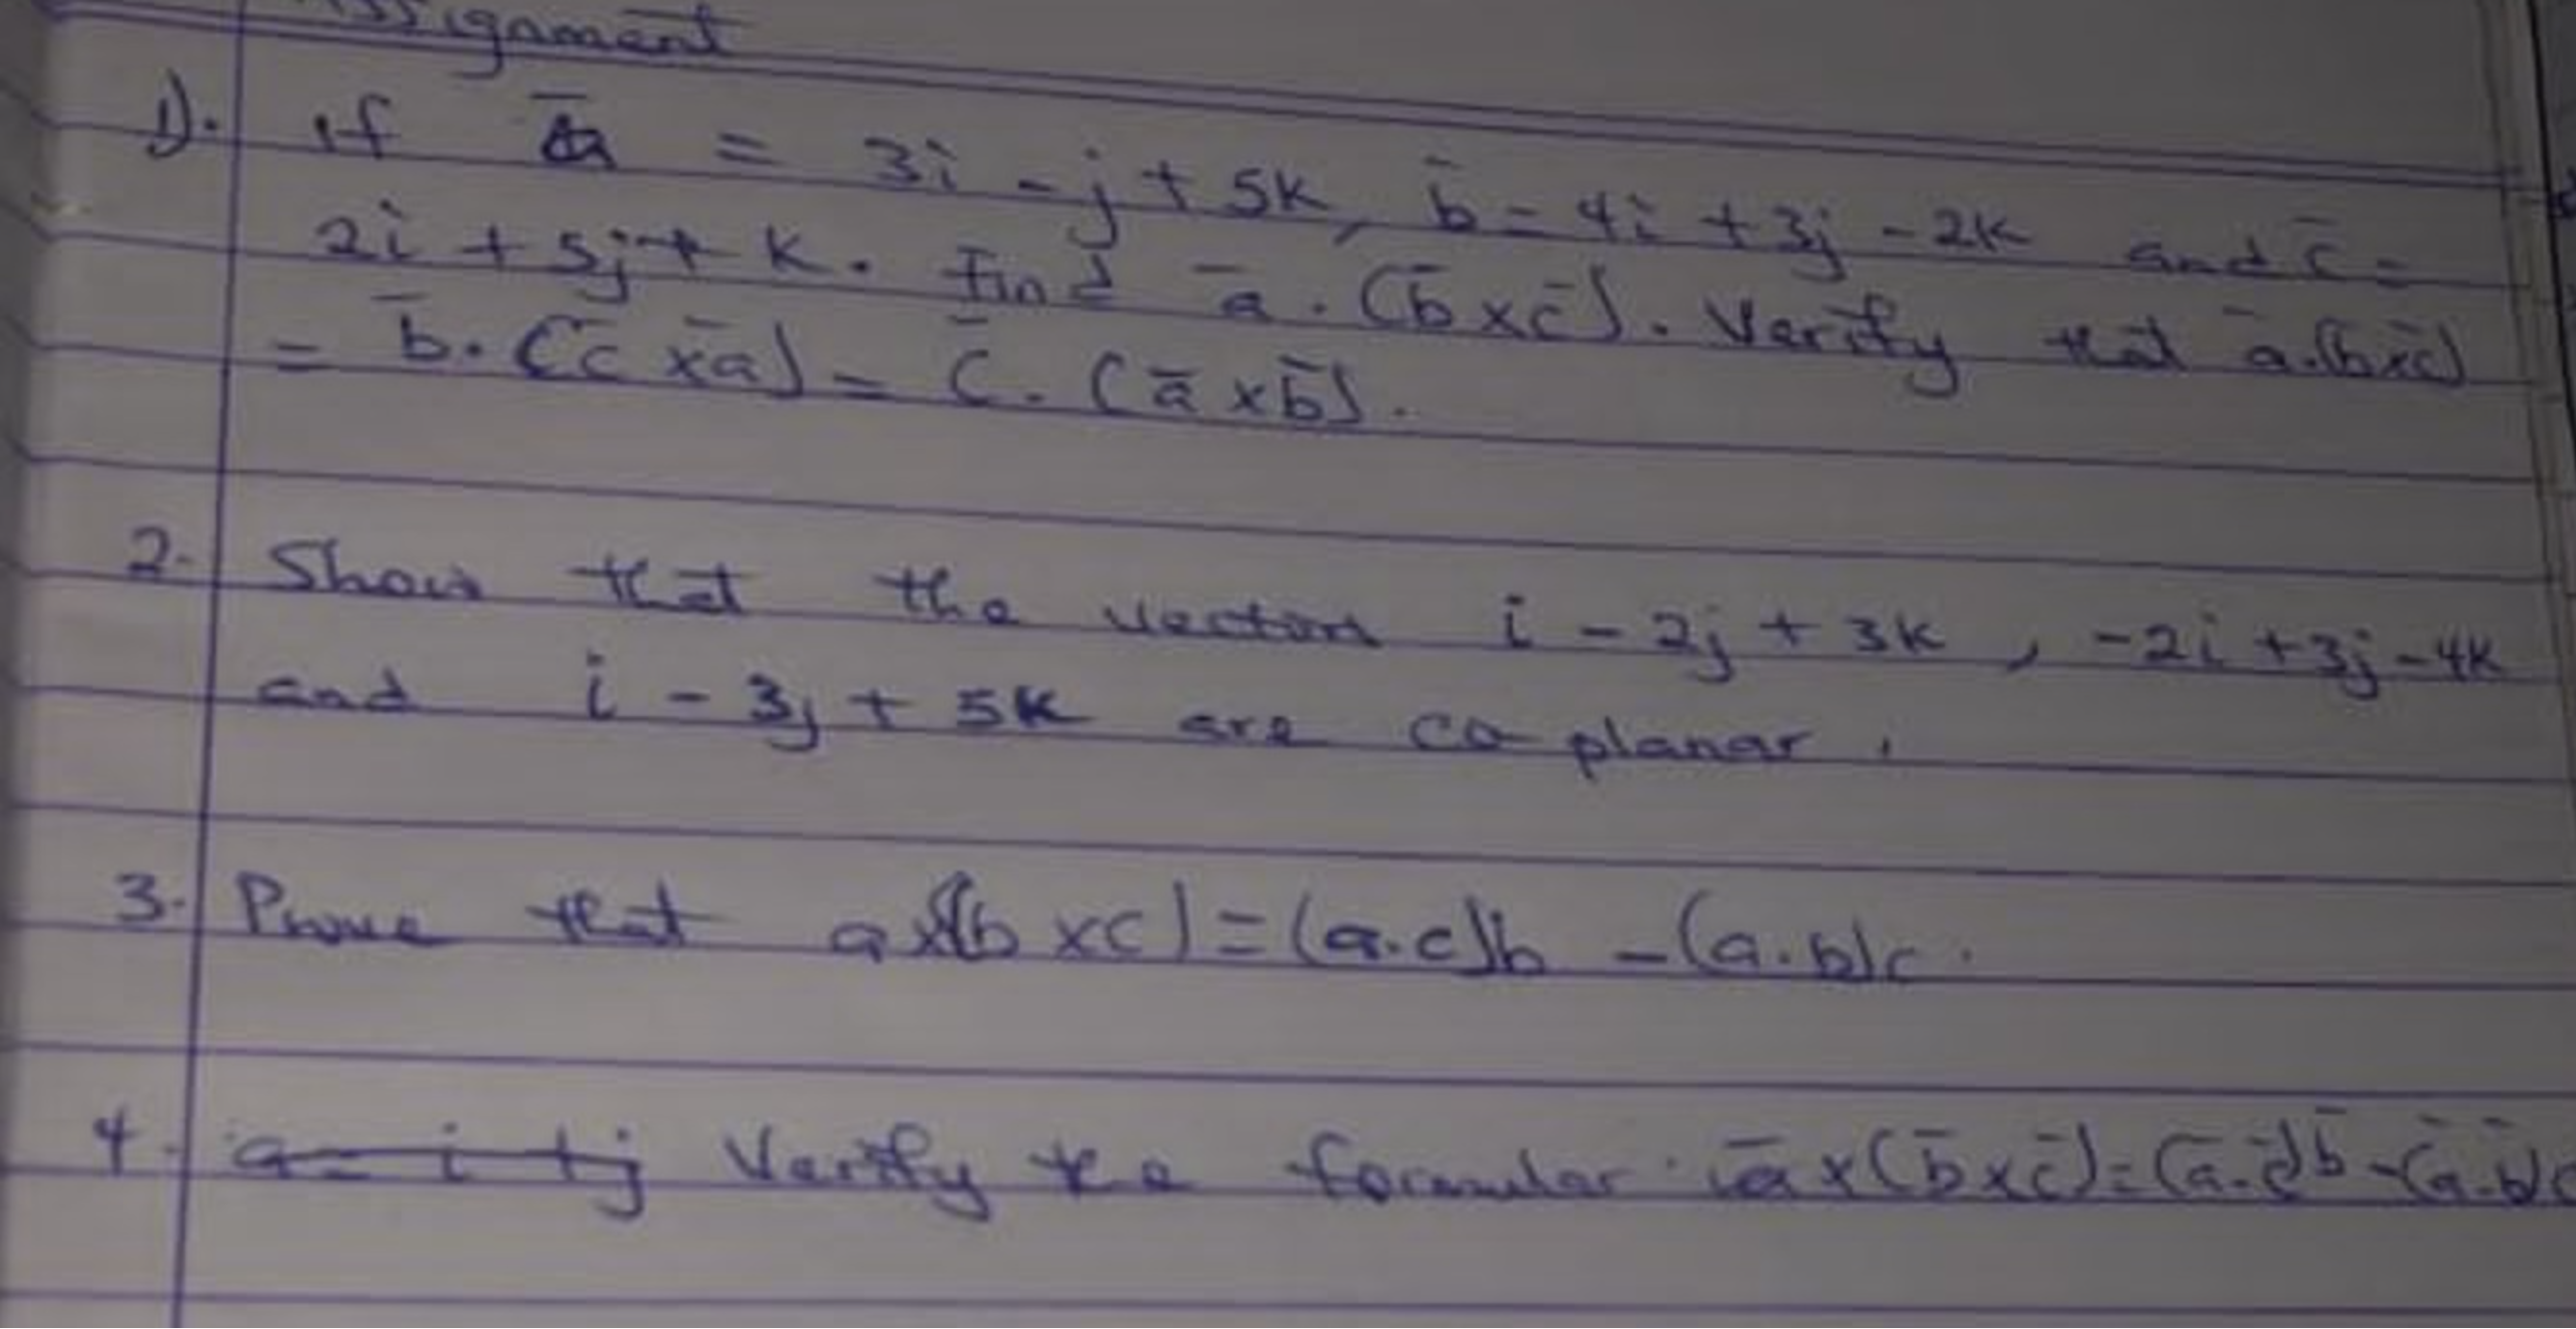 Assignment
1). If ā = 3i - j + 5k, b̄ = 4i + 3j - 2k and c̄ =
2i + 5j + k. Find ā . (b̄ x c̄). Verify that ā.(b̄xc̄)
= b̄. (c̄ x ā) = c̄. (ā x b̄).
2. Show that the vectors i - 2j + 3k, -2i + 3j - 4k
and i - 3j + 5k are co planar.
3. Prove that a x (b x c) = (a.c)b - (a.b)c.
4. a = i + j Verify the formular ā x (b̄ x c̄) = (ā.c̄)b̄ - (ā.b̄)c